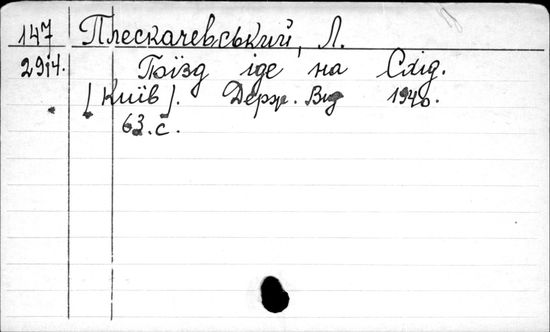 147 Плескачевський, Л.
2914. Поїзд іде на Схід.
[Київ]. Держ. Вид 1940.
63. с.